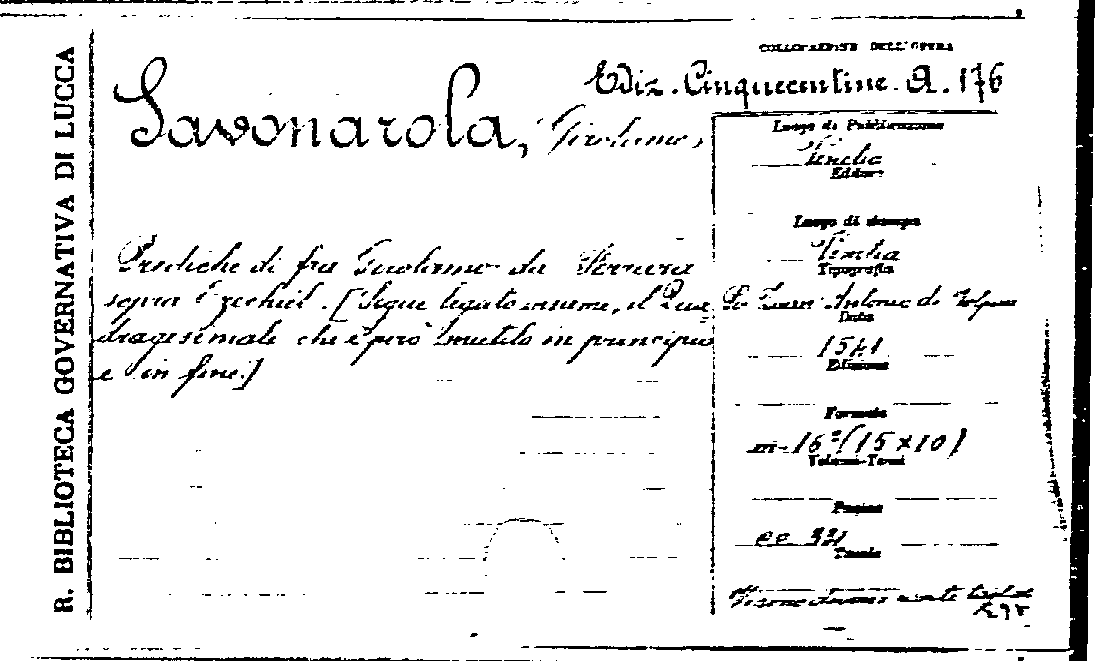 R. BIBLIOTECA GOVERNATIVA DI LUCCA
COLLOCAZIONE DELL'OPERA
Ediz. Cinquecentine. A. 176
Savonarola, Girolamo,
Luogo di Pubblicazione
Venetia
Editore
Luogo di stampa
Venetia
Tipografia
Prediche di fra Girolamo da Ferrara
sopra Ezechiel. [Segue legato insieme, il Qua
dragesimale che è però mutilo in principio
e in fine.]
Antonio di Volpini
Data
1541
Edizione
Formato
in-16° (15 x 10)
Volumi-Tomi
Pagine
cc
Tavole